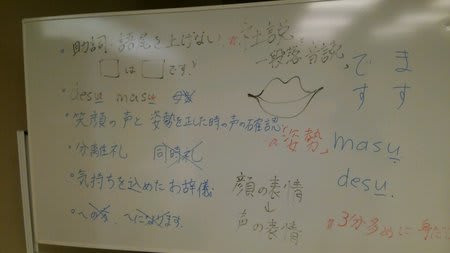 ・助詞・語尾を上げない
□は□です。
・desu masu 母数
・笑顔の声と姿勢を正した時の声の確認
・分離礼 同時礼
・気持ちを込めたお辞儀
・〜の方、〜になります
社説
一般落音読
、です
ます
"姿勢"
masu
desu
顔の表情
↓
声の表情
3分多めに